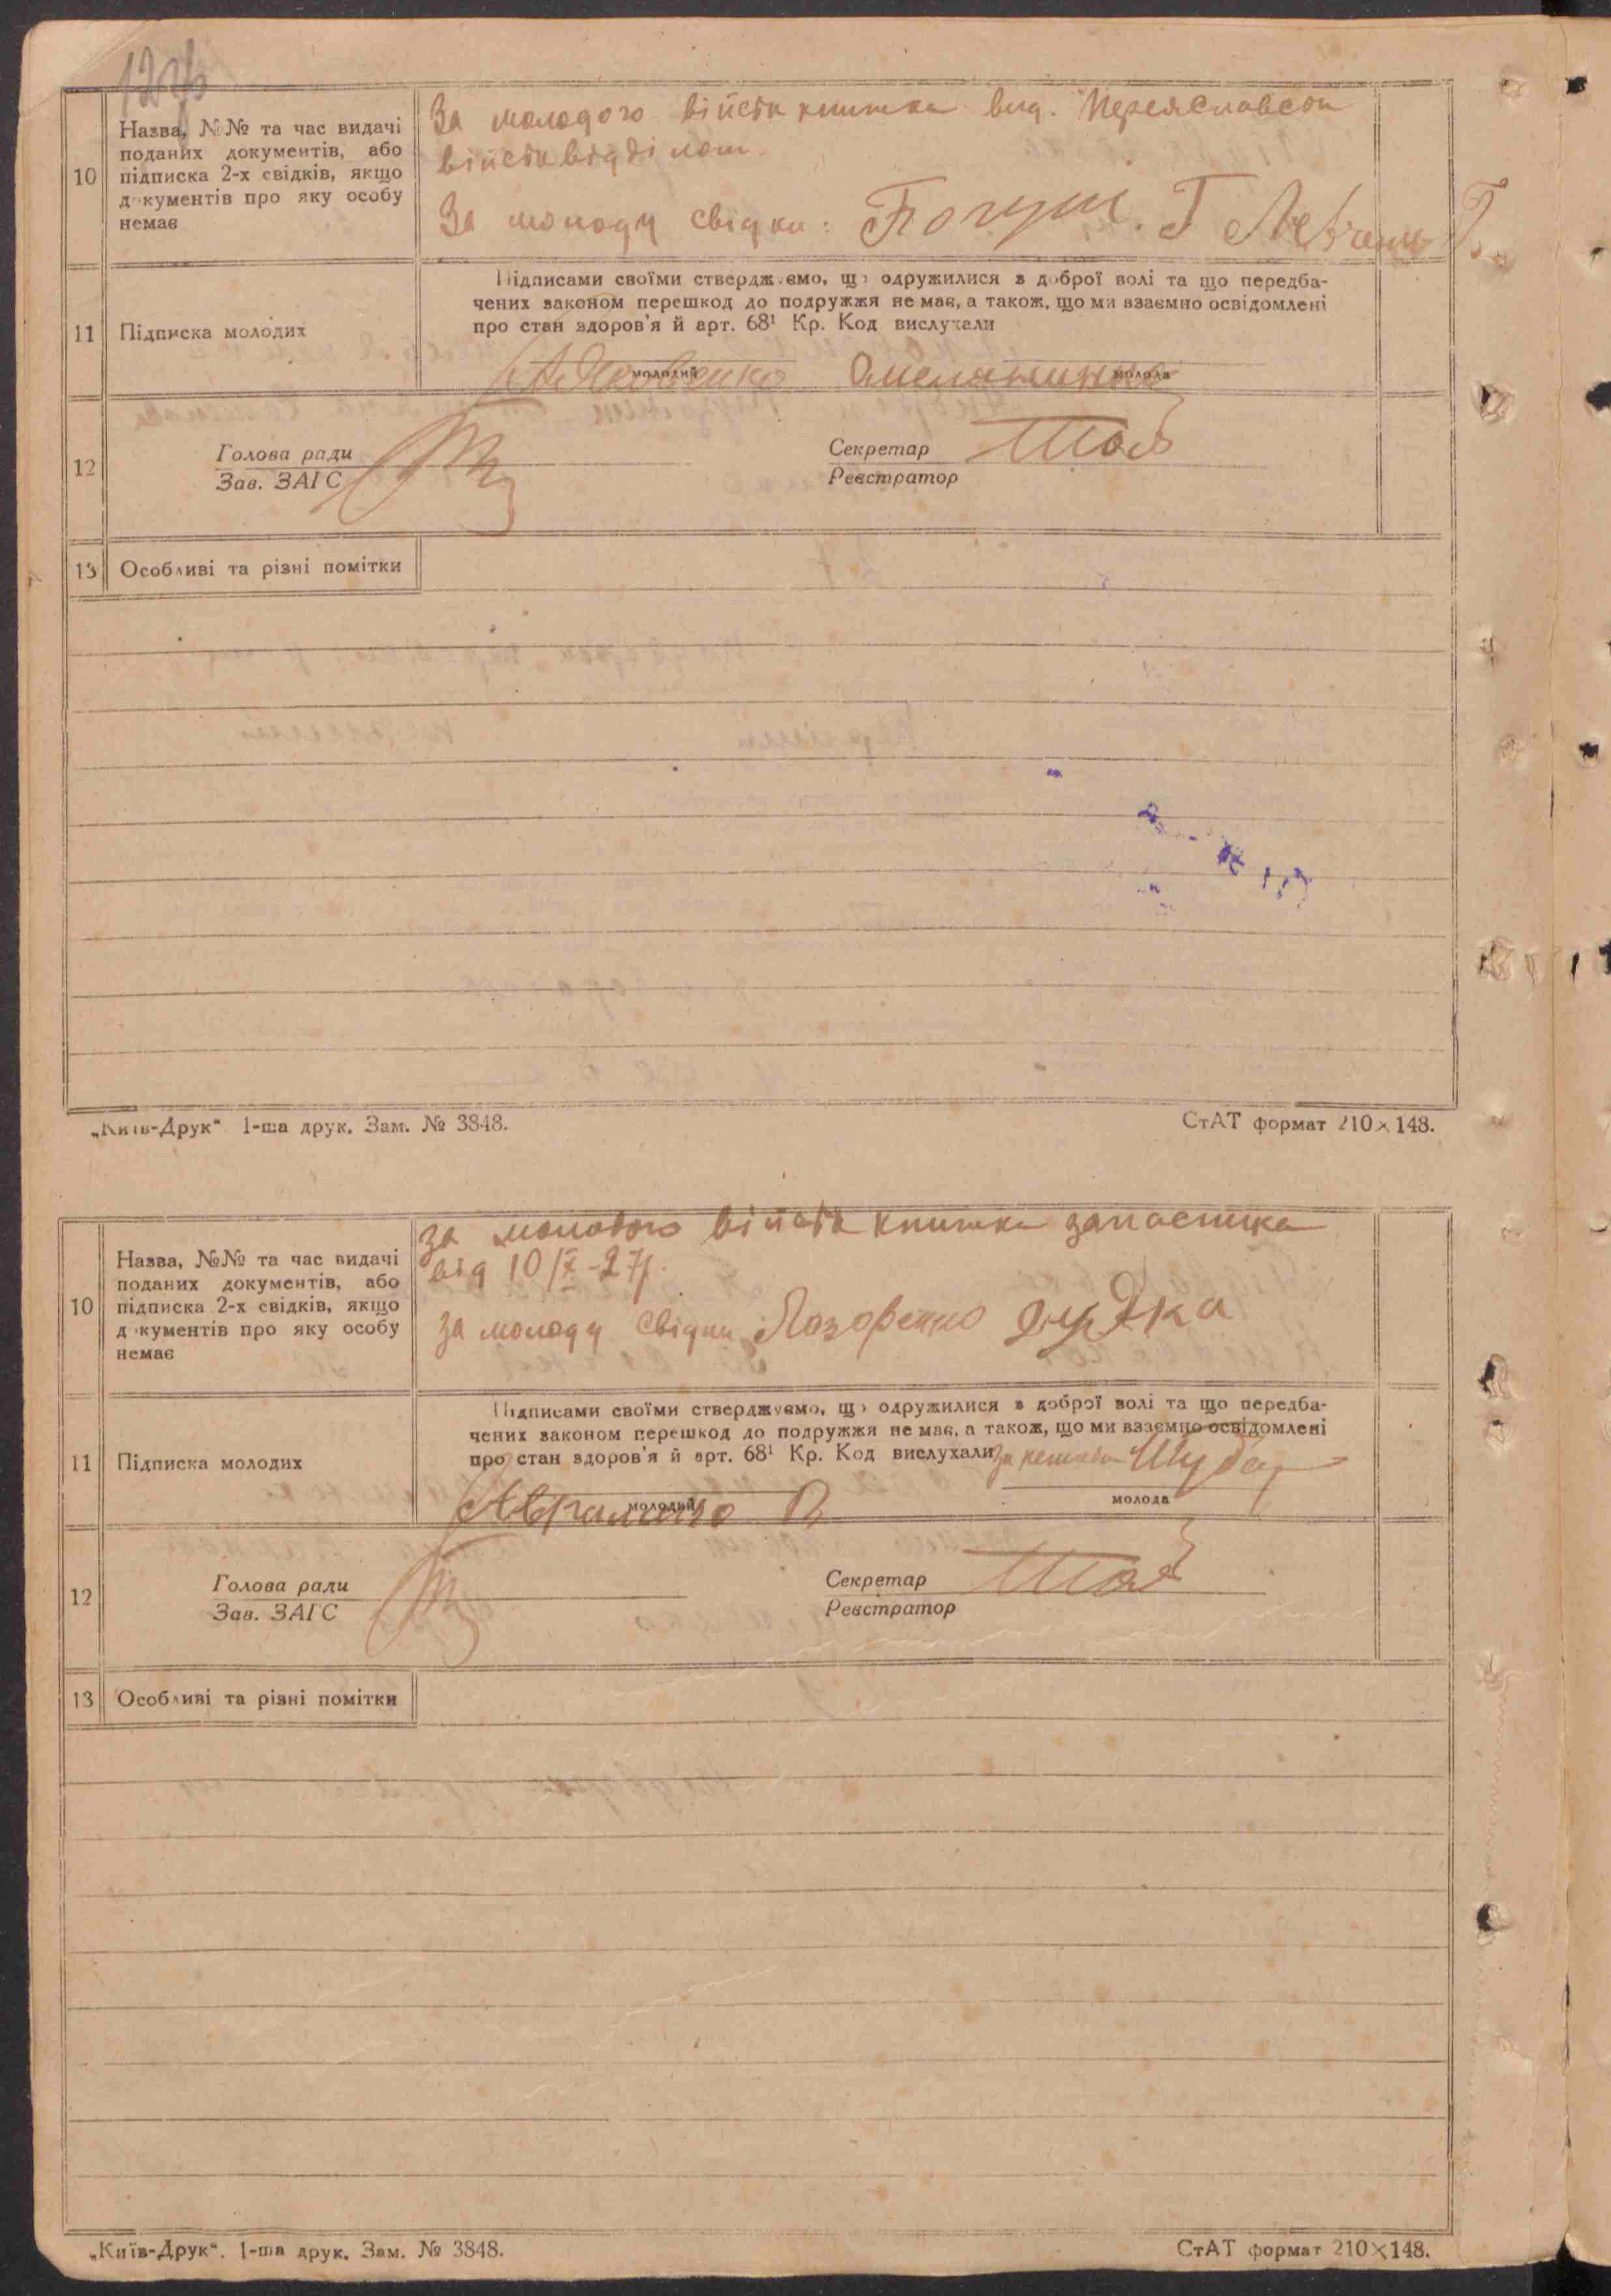 10
Назва, №№ та час видачі
поданих документів, або
підписка 2-х свідків, якщо
документів про яку особу
немає
За молодого військ книжка вид. Переяславськ
військвідділом.
За молоду свідки:
11
Підписка молодих
Підписами своїми стверджуємо, що одружилися з доброї волі та що передба-
чених законом перешкод до подружжя немає, а також, що ми взаємно освідомлені
про стан здоров'я й арт. 68¹ Кр. Код вислухали
молодий
молода
12
Голова ради
Зав. ЗАГС
Секретар
Реєстратор
13
Особливі та різні помітки
„Київ-Друк“ 1-ша друк. Зам. № 3848.
СтАТ формат 210×148.
10
Назва, №№ та час видачі
поданих документів, або
підписка 2-х свідків, якщо
документів про яку особу
немає
за молодого військ книжка запасника
від 10/IX-27р.
за молоду свідки Лазоренко Дудка
11
Підписка молодих
Підписами своїми стверджуємо, що одружилися з доброї волі та що передба-
чених законом перешкод до подружжя немає, а також, що ми взаємно освідомлені
про стан здоров'я й арт. 68¹ Кр. Код вислухали
молодий
молода
12
Голова ради
Зав. ЗАГС
Секретар
Реєстратор
13
Особливі та різні помітки
„Київ-Друк“. 1-ша друк. Зам. № 3848.
СтАТ формат 210×148.